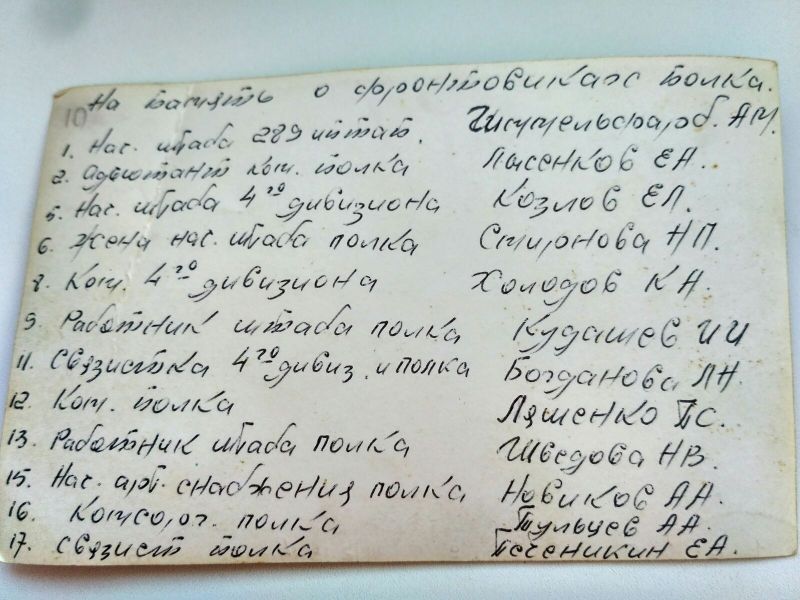 На память о фронтовиках полка.
10
1. Нач. штаба 289 иптап. Шттельфарб. АМ.
2. Адьютант ком. полка Лысенков ЕА.
5. Нач. штаба 4го дивизиона Козлов ЕЛ.
6. Жена нач. штаба полка Смирнова НП.
8. Ком. 4го дивизиона Холодов КА.
9. Работник штаба полка Кудашев ИИ
11. Связистка 4го дивиз. и полка Богданова ЛН.
12. Ком. полка Ляшенко ПС.
13. Работник штаба полка Шведова НВ.
15. Нач. арт. снабжения полка Новиков АА.
16. Комсорг. полка Тульцев АА.
17. Связист полка Печеникин ЕА.